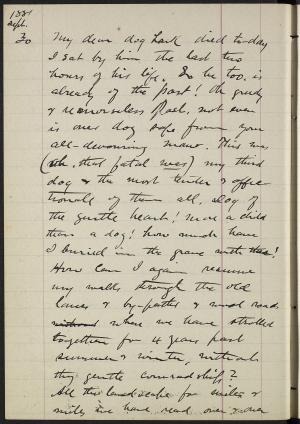 1881
Sept.
30
My dear dog Lark died to-day
I sat by him the last two
hours of his life. So he too, is
already of the past! Oh greedy
& remorseless Past, not even
is ones dog safe from your
all-devouring maw. This was
(oh, that fatal was) my third
dog & the most tender & affec-
tionate of them all, dog of
the gentle heart! more a child
than a dog! how much have
I buried in the grave with thee!
How can I again resume
my walks through the old
lanes & by-paths & wood roads
without where we have strolled
together for 4 years past
summer & winter, without
thy gentle comradeship?
All this landscape for miles &
miles we have read over & over